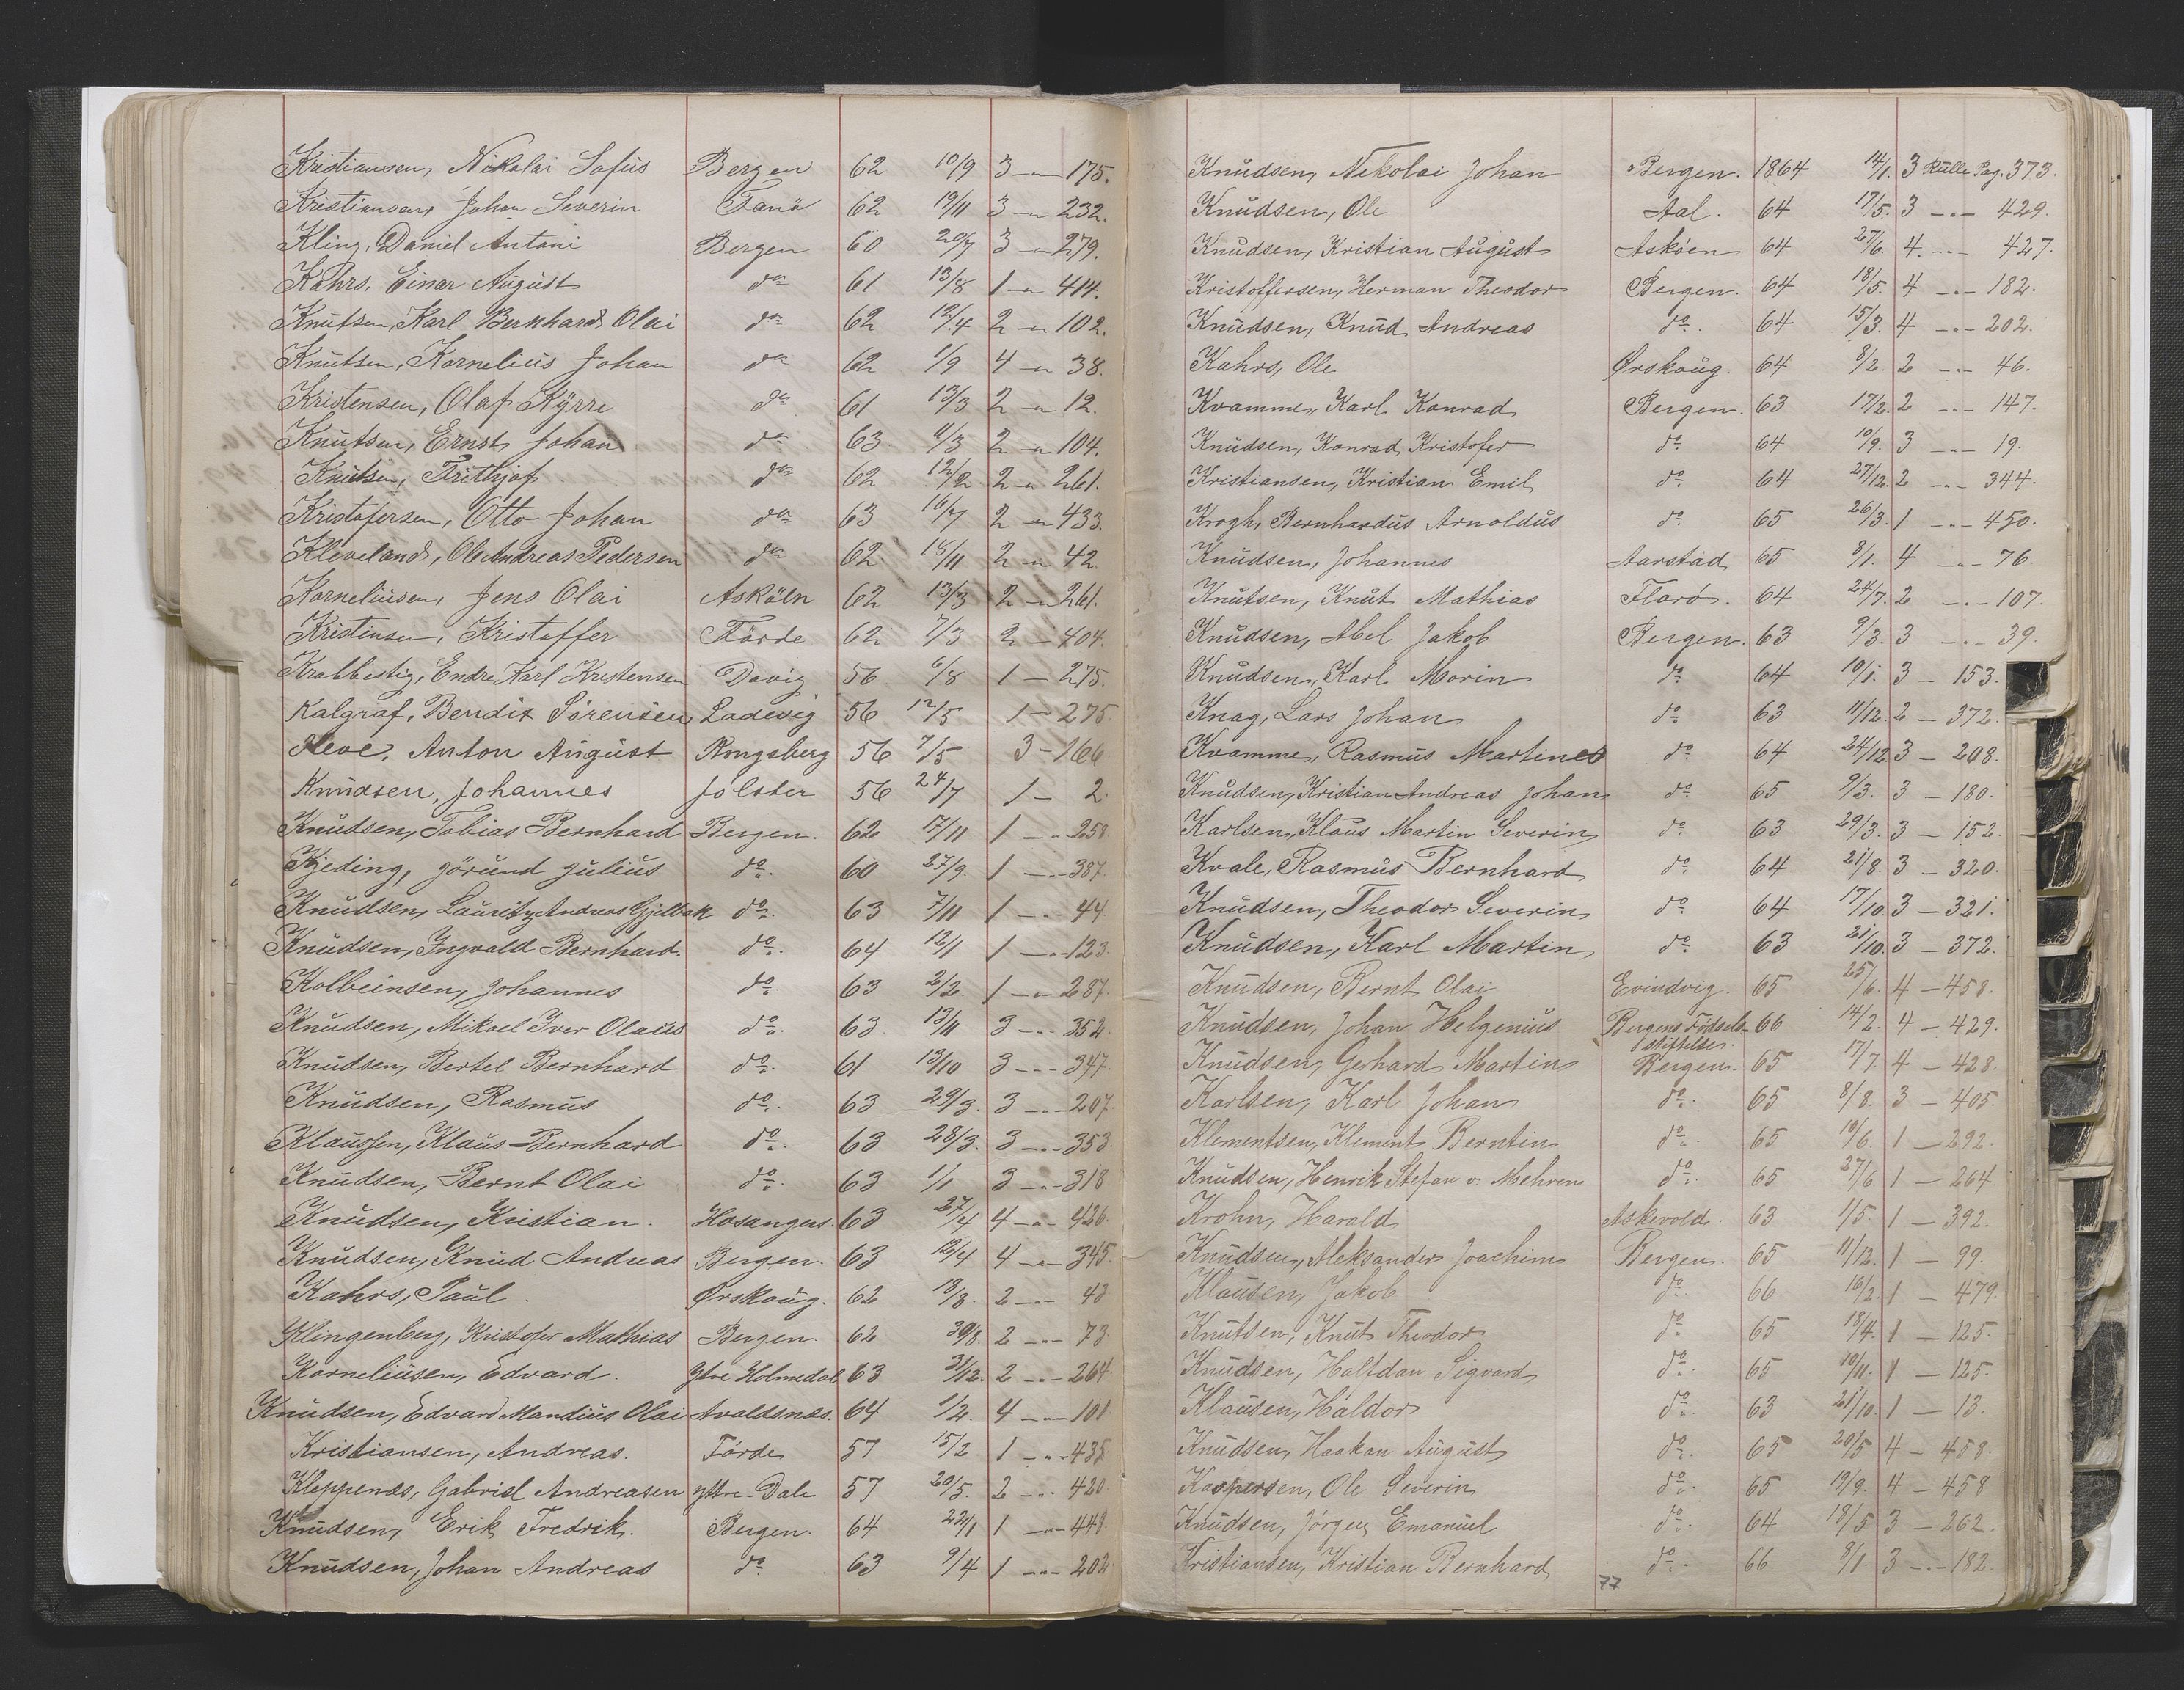 Kristiansen, Nikolai Sofus Bergen 62 10/9 3 -"- 175.
Kristiansen, Johan Severin Fanö 62 19/11 3 -"- 232.
Kling, Daniel Antoni Bergen 60 20/7 3 -"- 279.
Kahrs, Einar August do 61 13/8 1 -"- 414.
Knutsen, Karl Bernhard Olai do 62 12/4 2 -"- 102.
Knutsen, Kornelius Johan do 62 1/9 4 -"- 38.
Kristensen, Olaf Kyrre do 61 13/3 2 -"- 12.
Knutsen, Ernst Johan do 63 4/3 2 -"- 104.
Knutsen, Frithjof do 62 12/2 2 -"- 261.
Kristofersen, Otto Johan do 63 16/7 2 -"- 433.
Kleveland, Ole Andreas Pedersen do 62 18/11 2 -"- 42.
Korneliusen, Jens Olai Asköen 62 13/3 2 -"- 261.
Kristensen, Kristoffer Förde 62 7/3 2 - 404.
Krabbestig, Endre Karl Kristensen Davig 56 6/8 1 - 275.
Kalgraf, Bendix Sörensen Ladevig 56 12/5 1 - 275
Kleve, Anton August Kongsberg 56 7/5 3 - 166
Knudsen, Johannes Jölster 56 24/7 1 - 2.
Knudsen, Tobias Bernhard Bergen. 62 17/11 1 -"- 258
Kjeding, Jörund Julius do. 60 27/9. 1 -"- 387.
Knudsen, Lauritz Andreas Gjelbak do. 63 7/11 1 -"- 44
Knudsen, Ingvald Bernhard. do. 64 12/1 1 -"- 123.
Kolbeinsen, Johannes do. 63 2/2. 1 -"- 287.
Knudsen, Mikael Iver Olaus do. 63. 13/11 3 -"- 352.
Knudsen, Bertel Bernhard do. 61 13/10 3 -"- 347.
Knudsen, Rasmus do. 63 29/3. 3 -"- 207.
Klaussen, Klaus Bernhard do. 63 28/3. 3 -"- 353.
Knudsen, Bernt Olai do. 63 1/1 3 -"- 318.
Knudsen, Kristian. Hosanger. 63 27/4 4 -"- 426.
Knudsen, Knud Andreas Bergen. 63 12/4 4 -"- 345.
Kahrs, Paul. Ørskoug. 62 18/8. 2 -"- 43
Klingenberg, Kristofer Mathias Bergen. 62 30/8. 2 -"- 73.
Korneliusen, Edvard. Ytre Holmedal 63 31/12. 2 -"- 264.
Knudsen, Edvard Mandius Olai Avaldsnæs. 64 1/2. 4 -"- 101.
Kristiansen, Andreas. Förde 57 15/2 1 -"- 435.
Kleppenæs, Gabriel Andreasen Yttre-Dale 57 20/5. 2 -"- 420.
Knudsen, Erik Fredrik. Bergen. 64 22/1 1 -"- 449.
Knudsen, Johan Andreas do 63 9/4 1 -"- 202
Knudsen, Nekolai Johan Bergen. 1864 14/1. 3 Rulle Pag. 373.
Knudsen, Ole Aal. 64 17/5. 3 -"- 429.
Knudsen, Kristian August Asköen 64 27/6. 4. -"- 427.
Kristoffersen, Herman Theodor Bergen. 64 18/5. 4 -"- 182.
Knudsen, Knud Andreas do. 64 15/3. 4 -"- 202.
Kahrs, Ole Ørskoug. 64 8/2. 2 -"- 46.
Kvamme, Karl Konrad Bergen. 63 17/2. 2 -"- 147.
Knudsen, Konrad Kristofer do. 64 10/9. 3 -"- 19.
Kristiansen, Kristian Emil do. 64 27/12. 2 -"- 344.
Krogh, Bernhardus Arnoldus do. 65 26/3. 1 -"- 450.
Knudsen, Johannes Aarstad 65 8/1. 4 -"- 76.
Knutsen, Knut Mathias Florö. 64 24/7. 2 -"- 107.
Knudsen, Abel Jakob Bergen. 63 9/3. 3 -"- 39.
Knudsen, Karl Morin do. 64 10/1. 3 - 153.
Knag, Lars Johan do. 63 11/12. 2 - 372.
Kvamme, Rasmus Martines do. 64 24/12 3 - 208.
Knudsen, Kristian Andreas Johan do. 65 9/3. 3 - 180.
Karlsen, Klaus Martin Severin do. 63 29/3. 3 - 152.
Kvale, Rasmus Bernhard do. 64 21/8. 3 - 320.
Knudsen, Theodor Severin do. 64 17/10. 3 - 321.
Knudsen, Karl Martin do. 63 21/10. 3 - 372.
Knudsen, Bernt Olai Evindvig. 65 25/6. 4 - 458.
Knudsen, Johan Helgenius Bergens Födsels- 66 14/2. 4 - 429.
stiftelse.
Knudsen, Gerhard Martin Bergen. 65 17/7. 4 - 428.
Karlsen, Karl Johan do. 65 8/8. 3 - 405.
Klementsen, Klement Berntin do. 65 19/6. 1 - 292.
Knudsen, Henrik Stefan v. Mehren do. 65 27/6 1 - 264.
Krohn, Harald Askevold. 63 1/5. 1 - 392.
Knudsen, Aleksander Joachim Bergen. 65 11/12. 1 - 99.
Klausen, Jakob do 66. 16/2. 1 - 479.
Knutsen, Knut Theodor do. 65 18/4. 1 - 125.
Knudsen, Halfdan Sigvard do. 65 10/11. 1 - 125.
Klausen, Haldor do. 63 21/10. 1 - 13.
Knudsen, Haakan August do. 65 20/5 4 - 458.
Kaspersen, Ole Severin do. 65 19/9. 4 - 458
Knudsen, Jörgen Emanuel do. 64 18/5 3 - 262.
Kristiansen, Kristian Bernhard do. 66 8/1. 3 -"- 182.
77